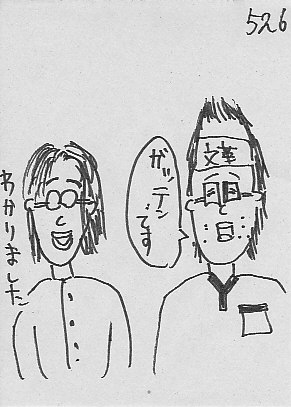 526
文革
ガッテン
です
わかりました